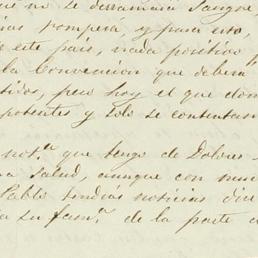 que no se derramara Sangre,
romperá, y para esto,
este pais, nada positivo
la Convencion que debera
tidos, pero hoy el que dom
potentes y solo se contentam
not.s que tengo de Dolores
salud, aunque con muc
Pablo tendrás noticias dire
a su fam.a de la parte d